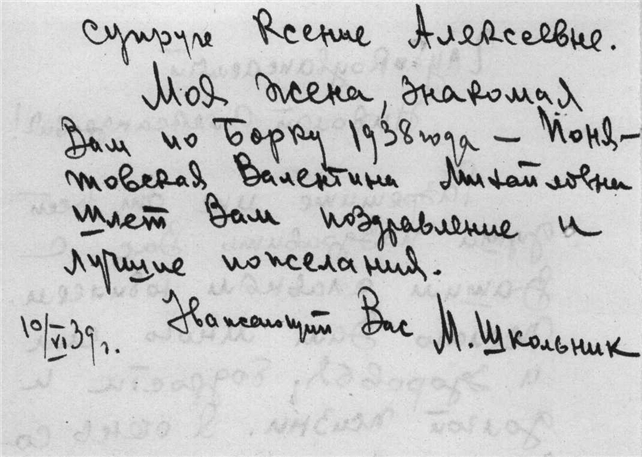 супруге Ксение Алексеевне.
Моя жена, знакомая
Вам по Борку 1938 года – Поня-
товская Валентина Михайловна
шлет Вам поздравление и
лучшие пожелания.
10/VI 39 г. Уважающий Вас М. Школьник